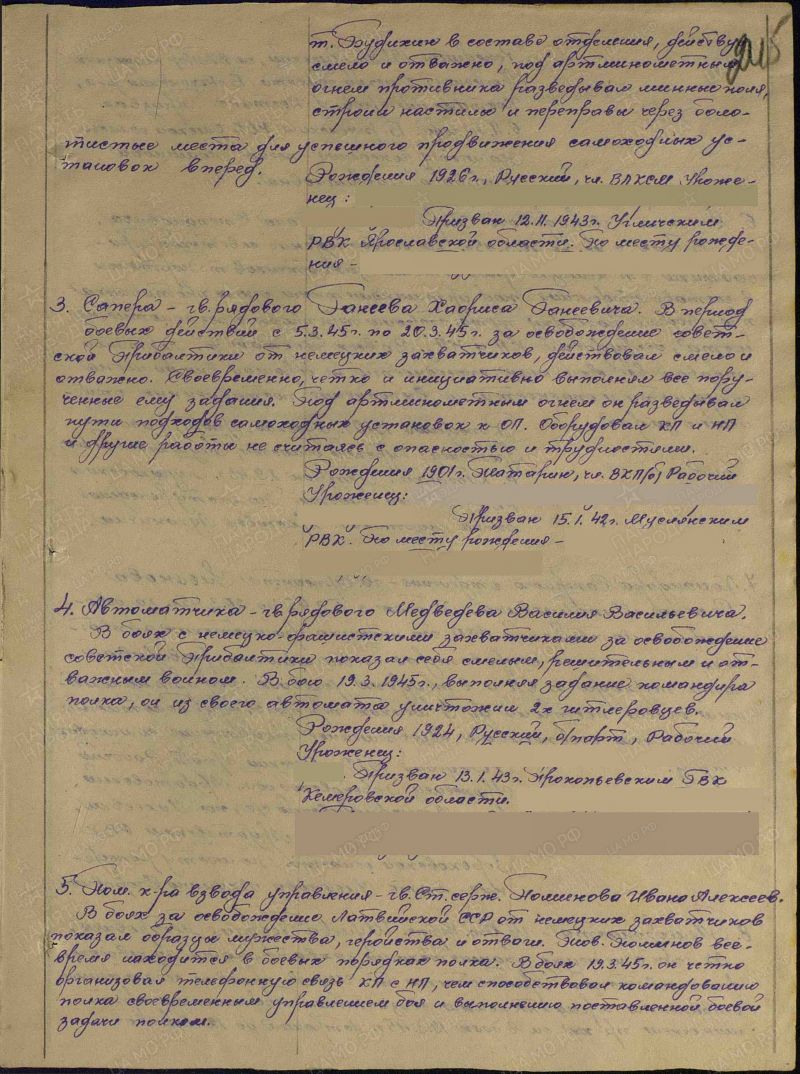 215
т. Будихин в составе отделения, действуя
смело и отважно, под артминометным
огнем противника разведывал минные поля,
строил настилы и переправы через боло-
тистые места для успешного продвижения самоходных ус-
тановок вперед.
Рождения 1926г., Русский, чл. ВЛКСМ Уроже-
нец:
Призван 12.11.1943г. Угличским
РВК Ярославской области. По месту рожде-
ния -
3. Сапера - гв. рядового Ганеева Хадриса Ганеевича. В период
боевых действий с 5.3.45г. по 20.3.45г. за освобождение совет-
ской Прибалтики от немецких захватчиков, действовал смело и
отважно. Своевременно, четко и инициативно выполнял все пору-
ченные ему задания. Под артминометным огнем он разведывал
пути подходов самоходных установок к ОП. Оборудовал КП и НП
и другие работы не считаясь с опасностью и трудностями.
Рождения 1901г. Татарин, чл. ВКП/б/ Рабочий
Уроженец:
Призван 15.1.42г. Муслюмским
РВК. По месту рождения -
4. Автоматчика - гв. рядового Медведева Василия Васильевича.
В боях с немецко-фашистскими захватчиками за освобождение
советской Прибалтики показал себя смелым, решительным и от-
важным воином. В бою 19.3.1945г., выполняя задание командира
полка, он из своего автомата уничтожил 2х гитлеровцев.
Рождения 1924, Русский, б/парт, Рабочий
Уроженец:
Призван 13.1.43г. Прокопьевским ГВК
Кемеровской области.
5. Пом. к-ра взвода управления - гв. Ст. серж. Поминова Ивана Алексеев.
В боях за освобождение Латвийской ССР от немецких захватчиков
показал образцы мужества, геройства и отваги. Тов. Поминов все-
время находится в боевых порядках полка. В боях 19.3.45г. он четко
организовал телефонную связь КП с НП, чем способствовал командованию
полка своевременным управлением боя и выполнению поставленной боевой
задачи полком.